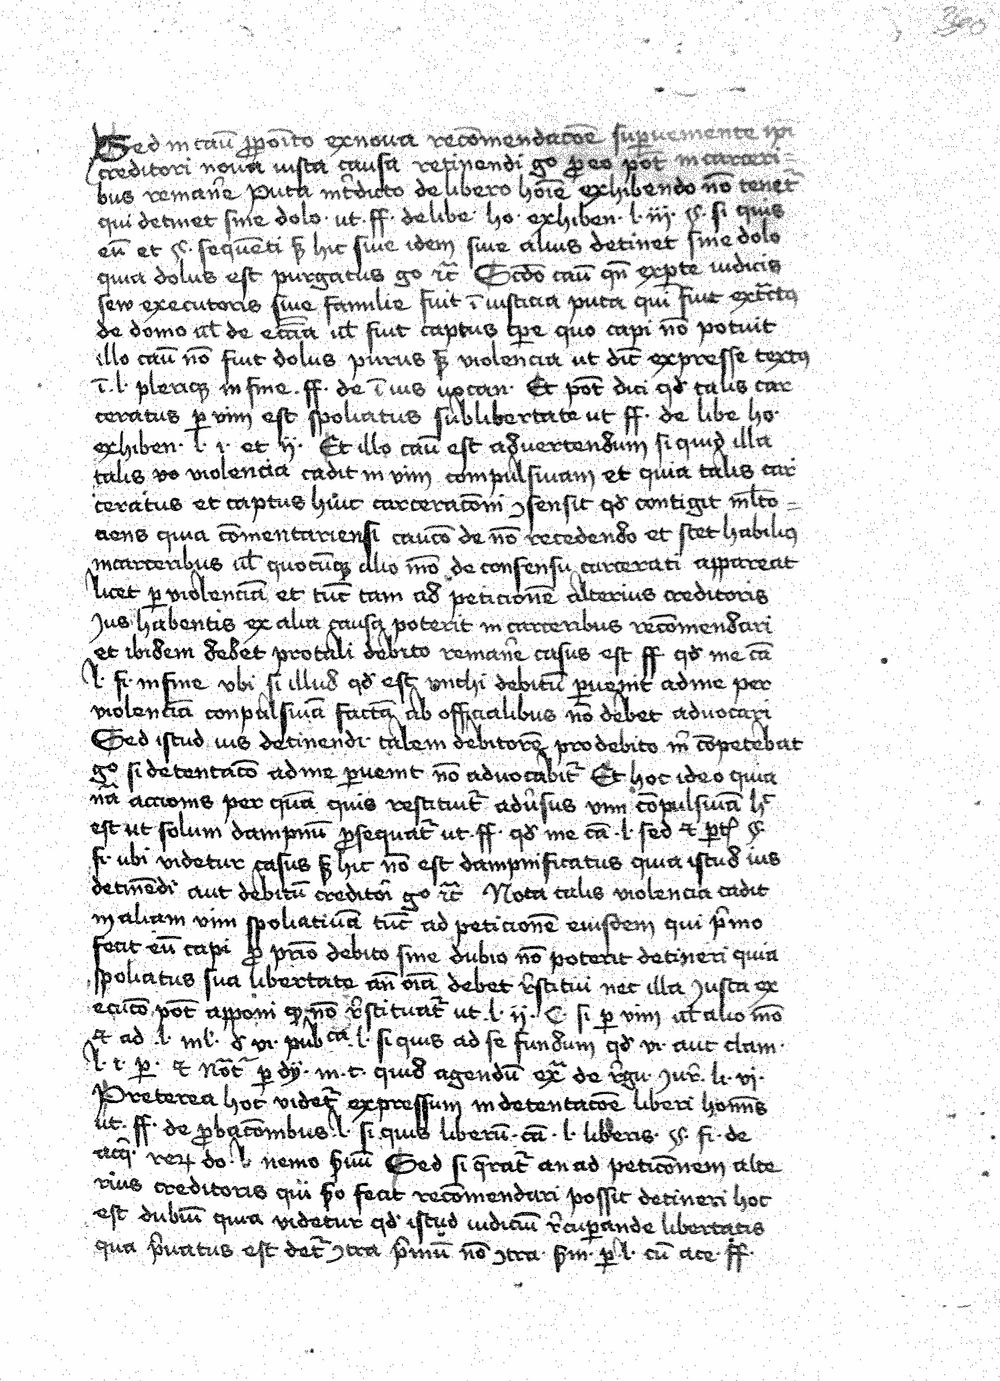 360
Sed in cāu p̄poīto ex nova recōmendacōe supveniente ip̄i
creditori nova iusta causa retinendi gͦ p̄ eo pōt in carceri=
bus remanēe puta int̄dicto de libero hōīe exhibendo nō tenet᷑
qui detinet sine dolo · ut · ff · de libe · ho · exhiben · l · iij · §. si quis
eū et §. sequēti s̄ hic sive idem sive alius detinet sine dolo
quia dolus est purgatus gͦ ēc̄ Scd̄o cāu qn̄ ex p̄te iudicis
seu executoris sive familie fuit ī iusticia puta qui fuit ext̄ctꝰ
de domo ul̄ de ecc̄ia ul̄ fuit captus tp̄e quo capi nō potuit
illo cāu nō fuit dolus purus s̄ violencia ut dic̄ expresse textꝰ
ī · l · pleriqꝫ in fine · ff · de ī ius vocan · Et pōt dici qd̄ talis car
ceratus ꝑ vim est spoliatus sub libertate ut ff · de libe ho ·
exhiben · l · i · et ij · Et illo cāu est advertendum si quid illa
talis vo violencia cadit in vim compulsivam et quia talis car
ceratus et captus huic carceracōni ꝯsensit qd̄ contigit ml̄to=
ciens quia cōmentariensi caucō de nō recedendo et stet habiliꝰ
in carceribus ul̄ quocūqꝫ alio mō de consensu carcerati appareat
licet ꝑ violenciā et tūc tam ad peticionē alterius creditoris
ius habentis ex alia causa poterit in carceribus recōmendari
et ibidem debet pro tali debito remanēe casus est ff qd̄ me cā
l · fi · in fine ubi si illud qd̄ est michi debitū ꝑvenit ad me per
violenciā conpulsivā factā ab officialibus nō debet advocari
Sed istud ius detinendi talem debitorē pro debito m̄ cōpetebat
gͦ si detentacō ad me ꝑvenit nō advocabit᷑ Et hoc ideo quia
nā accionis per quā quis restituit᷑ adv̄sus vim cōpulsivā hꝰ
est ut solum dampnū p̄sequat᷑ ut · ff · qd̄ me cā · l · sed et ꝑt §.
fi · ubi videtur casus s̄ hic nō est dampnificatus quia istud ius
detinēdi aut debitū creditori gͦ ēc̄ Nota talis violencia cadit
in aliam vim spoliativā tūc ad peticionē eiusdem qui p̄mo
fecit eū capi p̄ prīo debito sine dubio nō poterit detineri quia
spoliatus sua libertate añ oīā debet r̄stitui nec illa iusta ex
ecucō pōt apponi qꝫ nō r̄stituat᷑ ut · l · ij · C · si ꝑ vim ul̄ alio mō
et ad · l · iul · d̄ vi · pub ca · l · si quis ad se fundum qd̄ vi · aut clam ·
l · i · ꝑ · et nōt᷑ ꝑ dy · in · c · quid agendū ex̄ de r̄gu · iur̄ · li · vi ·
Preterea hoc videt᷑ expressum in detentacōe liberi hom̄s
ut · ff · de p̄bacōnibus · l · si quis liberū · cā · l · liberis · §. fi · de
acq̄ · rerꝝ do · l · nemo s̄vū Sed si q̄rat᷑ an ad peticōnem alte
rius creditoris qui s̄o fecit recōmendari possit detineri hoc
est dubiū quia videtur qd̄ istud iudiciū r̄cuꝑande libertatis
qua p̄vatus est det᷑ ꝯtra p̄mū nō ꝯtra s̄m · ꝑ · l · cū ace · ff ·